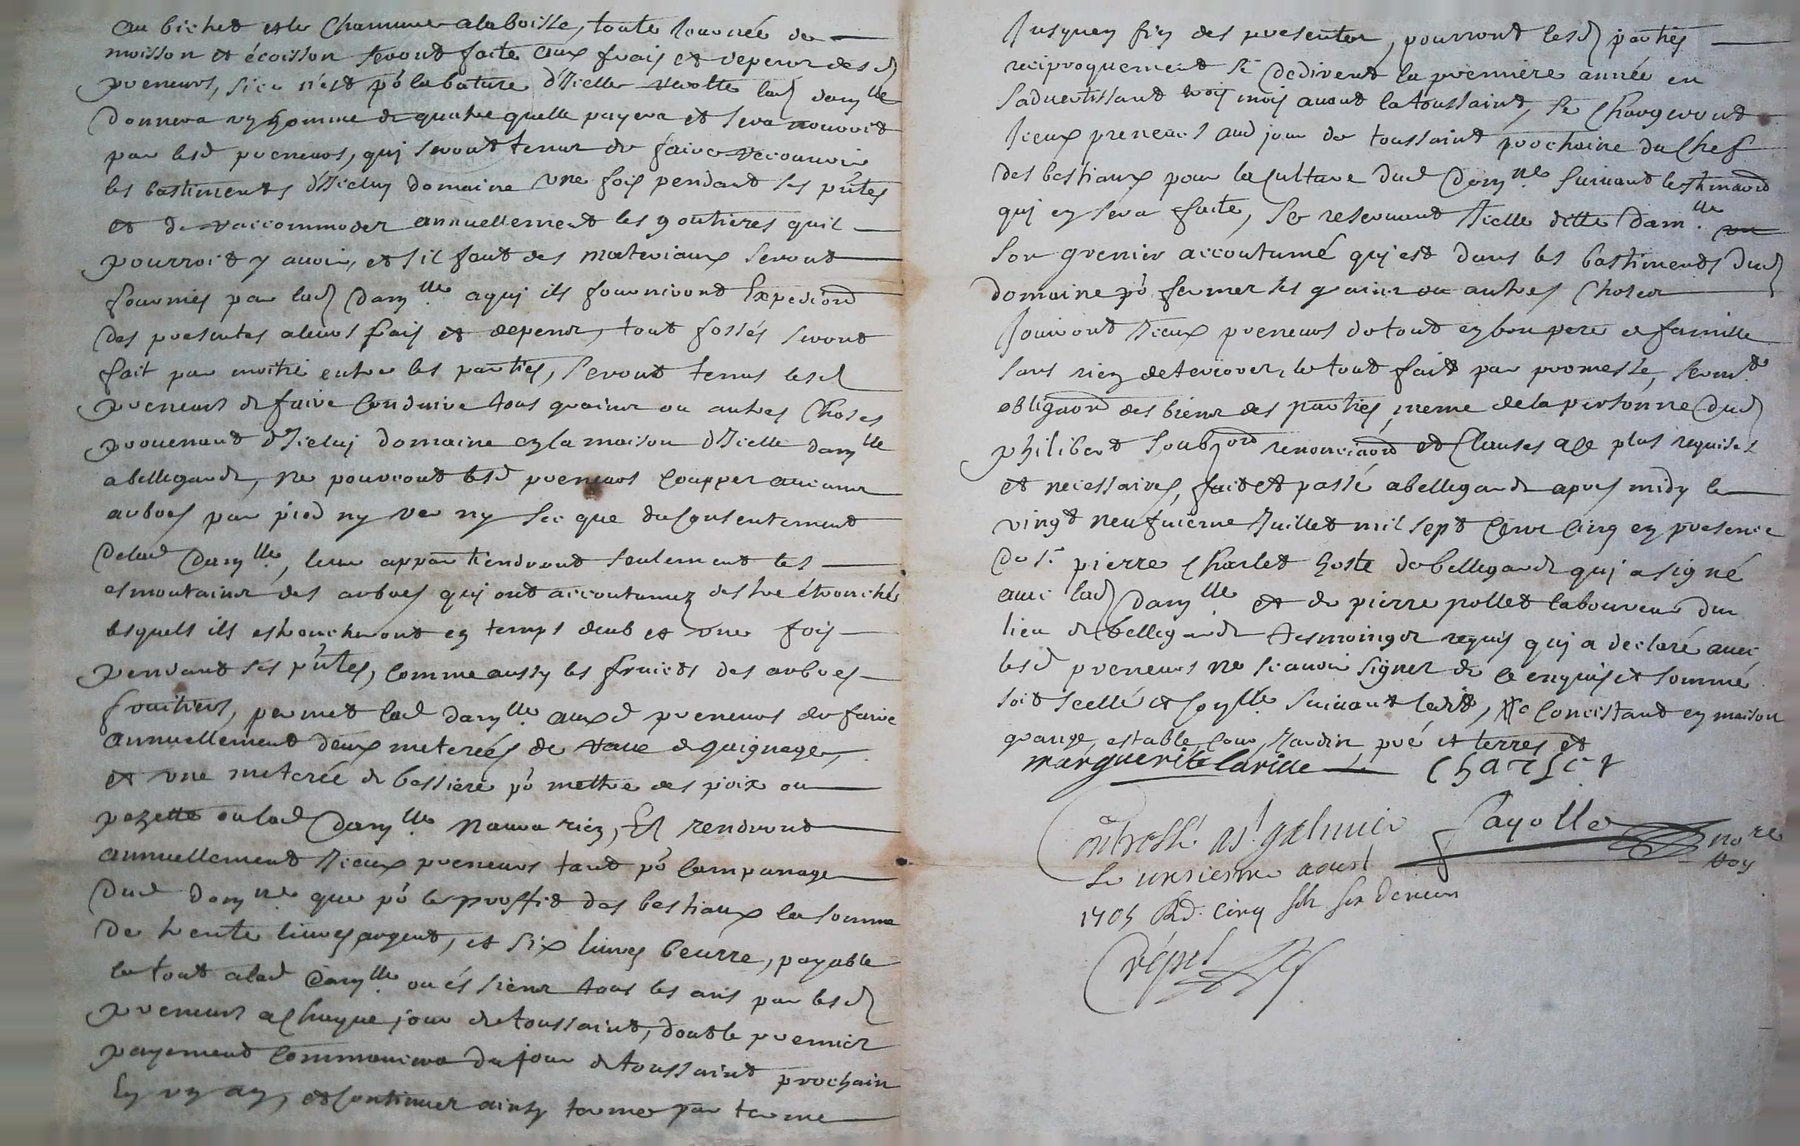 au bichet et le chamure a la boisse, toute journée de
moisson et écoisson seront faite aux frais et depens desd
preneurs, si ce n'est po la bature d'icelle recolte lad damlle
donnera un homme de quatre quelle payera et sera nourrit
par lesd preneurs, qui seront tenus de faire recouvrir
les bastiments d'iceluy domaine une fois pendant les pntes
et de raccommoder annuellement les goutieres quil
pourroit y avoir, et sil faut des materiaux seront
fournies par lad damlle a qui ils fourniront expediond
des presentes a leurs frais et depens, tout fossés seront
fait par moitié entre les parties, seront tenus lesd
preneurs de faire conduire tous grains ou autres choses
provenant d'iceluy domaine en la maison d'icelle damlle
a bellegarde, ne pourront lesd preneurs coupper aucuns
arbres par pied ny ver ny sec que du consentement
de lad damlle, leur appartiendront seulement les
esmontaines des arbres qui ont accoutumez destre étronché
lesquels ils estroncheront en temps deub et une fois
pendant les pntes, comme aussy les fruicts des arbres
fruitiers, permet lad damlle auxd preneurs de faire
annuellement deux meterées de rave de guignage,
et une meterée de bessiere po mettre des poix ou
pezette ou lad damlle naura rien, Et rendront
annuellement iceux preneurs tant po lampanage
dud domne que po le proffit des bestiaux la somme
de trente livres argent, et six livres beurre, payable
le tout a lad damlle ou és siens tous les ans par lesd
preneurs a chaque jour de toussaint, dont le premier
payement commancera du jour de toussaint prochain
En un an, et continuer ainsy terme par terme
Jusques fin des presentes, pourront lesd parties
reciproquement se dedirent la premiere année en
sadvertissant trois mois avant la toussaint, se chargeront
Iceux preneurs aud jour de toussaint prochaine du chef
des bestiaux pour la culture dud domne suivant lestimaond
qui en sera faite, se reservant icelle ditte damlle
son grenier accoutumé qui est dans les bastiments dud
domaine po fermer ses grains ou autres choses
Jouiront iceux preneurs du tout en bon pere de famille
sans rien deteriorer, le tout fait par promesse, sermt
obligaond des biens des parties, meme de la personne dud
philibert soubzond renonciaond et clauses a ce plus requises
et necessaires, fait et passé a bellegarde apres midy le
vingt neufvieme Juillet mil sept cens cinq en presence
de sr pierre Charlet hoste de bellegarde qui a signé
avec lad damlle et de pierre pollet laboureur du
lieu de bellegarde tesmoings requis qui a declaré avec
lesd preneurs ne scavoir signer de ce enquis et sommé
soit scellé et conlle suivant ledit, consistant en maison
grange, estable, cour, Jardin, pré et terres et
marguerite larille Charlet
Controllé a st galmier fayolle nore
Le unzieme aoust roy
1705 Rd. cinq sols six deniers
Crépet